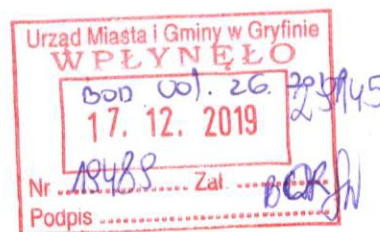 Urząd Miasta i Gminy w Gryfinie
WPŁYNĘŁO
BOD 001. 26.
17. 12. 2019
Nr ........ Zał ........
Podpis ........